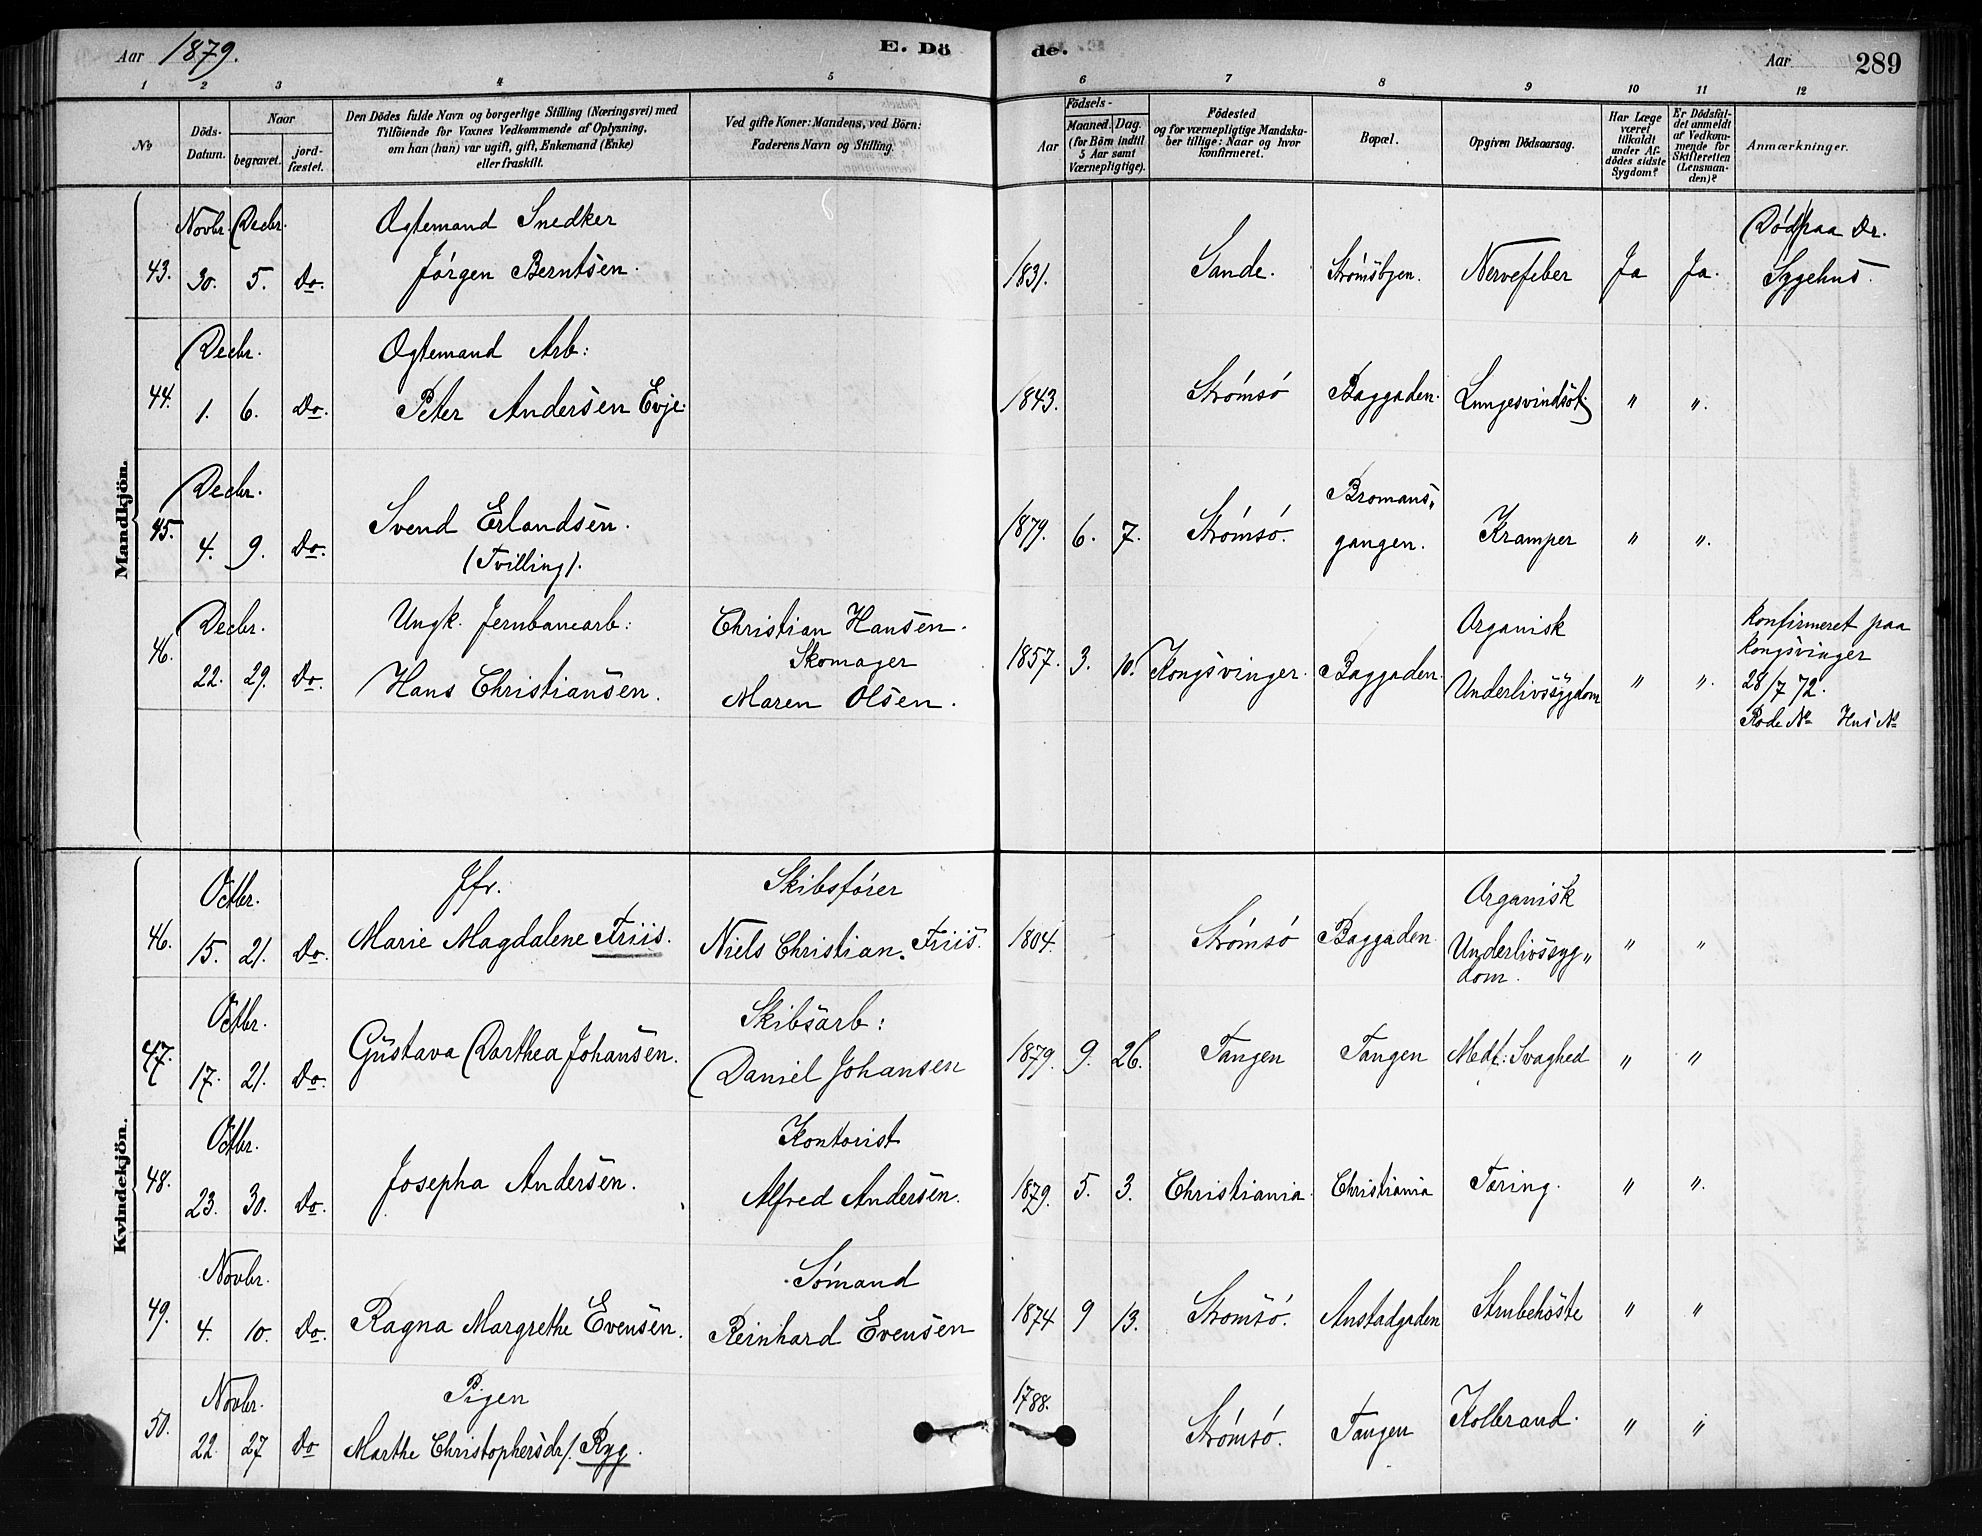 Aar 1879. E. Dö de. Aar 289
1 2 3 4 5 6 7 8 9 10 11 12
No
Döds-Datum.
Naar
begravet.
jordfæstet.
Den Dödes fulde Navn og borgerlige Stilling (Næringsvei) med
Tilföiende for Voxnes Vedkommende af Oplysning,
om han (hun) var ugift, gift, Enkemand (Enke)
eller fraskilt.
Ved gifte Koner: Mandens, ved Börn:
Faderens Navn og Stilling.
Födsels-
Aar
Maaned. Dag.
(for Börn indtil
5 Aar samt
Værnepligtige).
Födested
og for værnepligtige Mandska-
ber tillige: Naar og hvor
konfirmeret.
Bopæl.
Opgiven Dödsaarsag.
Har Læge
været
tilkaldt
under Af-
dödes sidste
Sygdom?
Er Dödsfal-
det anmeldt
af Vedkom-
mende for
Skifteretten
(Lensman-
den)?
Anmærkninger.
Mandkjön.
Novbr. Decbr. Ogtemand Snedker Død paa Dr.
43. 30. 5. Do. Jørgen Berntsen. 1831. Sande. Strømsbyen. Nervefeber Ja Ja. Sygehus.
Decbr. Ogtemand Arb:
44. 1. 6. Do. Peter Andersen Evje. 1843. Strømsø Baggaden. Lungesvindsót. " ".
Decbr. Bromans„
45. 4. 9. Do. Svend Erlandsen. 1879. 6. 7. Strømsø. gangen. Kramper " ".
(Tvilling).
Decbr. Ungk. Jernbanearb: Christian Hansen. Organisk konfirmeret paa
Skomager Kongsvinger
46. 22. 29. Do. Hans Christiansen. Maren Olsen. 1857. 3. 10. Kongsvinger. Baggaden. Underlivssygdom " ". 28/7 72.
Rode No Hus No
Kvindekjön.
Octbr. Jfr. Skibsfører Organisk
46. 15. 21. Do. Marie Magdalene Friis. Niels Christian Friis. 1804. Strømsø Baggaden. Underlivssyg„ " "
dom.
Octbr. Skibsarb:
47. 17. 21. Do. Gustava Dorthea Johansen. Daniel Johansen 1879. 9. 26. Tangen Tangen Medf: Svaghed " "
Octbr. Kontorist
48. 23. 30. Do. Josepha Andersen. Alfred Andersen. 1879. 5. 3. Christiania. Christiania Tæring. " ".
Novbr. Sømand
49. 4. 10. Do. Ragna Margrethe Evensen. Reinhard Evensen 1874 9 13. Strømsø. Anstadgaden Strubehoste " "
Novbr. Pigen 1788.
50. 22. 27 Do Marthe Christophersdr/. Ryg. Strømsø. Tangen Kolbrand. " "